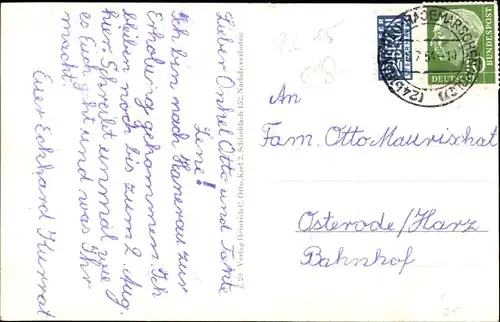 Lieber Onkel Otto und Tante
Lene!
Ich bin nach Hanerau zur
Erholung gekommen. Ich
bleibe noch bis zum 2. Aug.
hier. Schreibt einmal wie
es Euch geht und was Ihr
macht!
Euer Eckhard Kurrat
Verlag Heinrich C. Otto, Kiel 2, Schließfach 152,
An
Fam. Otto Maurischat
Osterode/Harz
Bahnhof
DEUTSCHE
BUNDESPOST